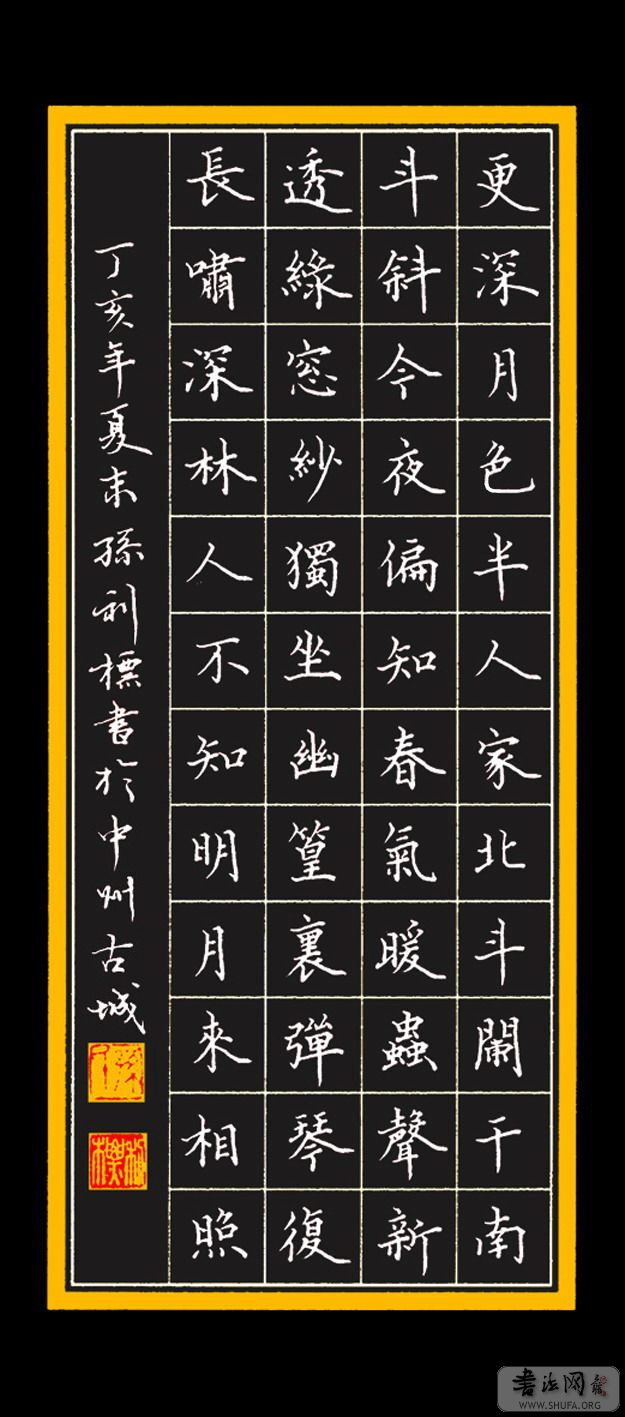 更深月色半人家北斗闌干南
斗斜今夜偏知春氣暖蟲聲新
透綠窓紗獨坐幽篁裏彈琴復
長嘯深林人不知明月來相照
丁亥年夏末孫利標書於中州古城
書法网
WWW.SHUFA.ORG